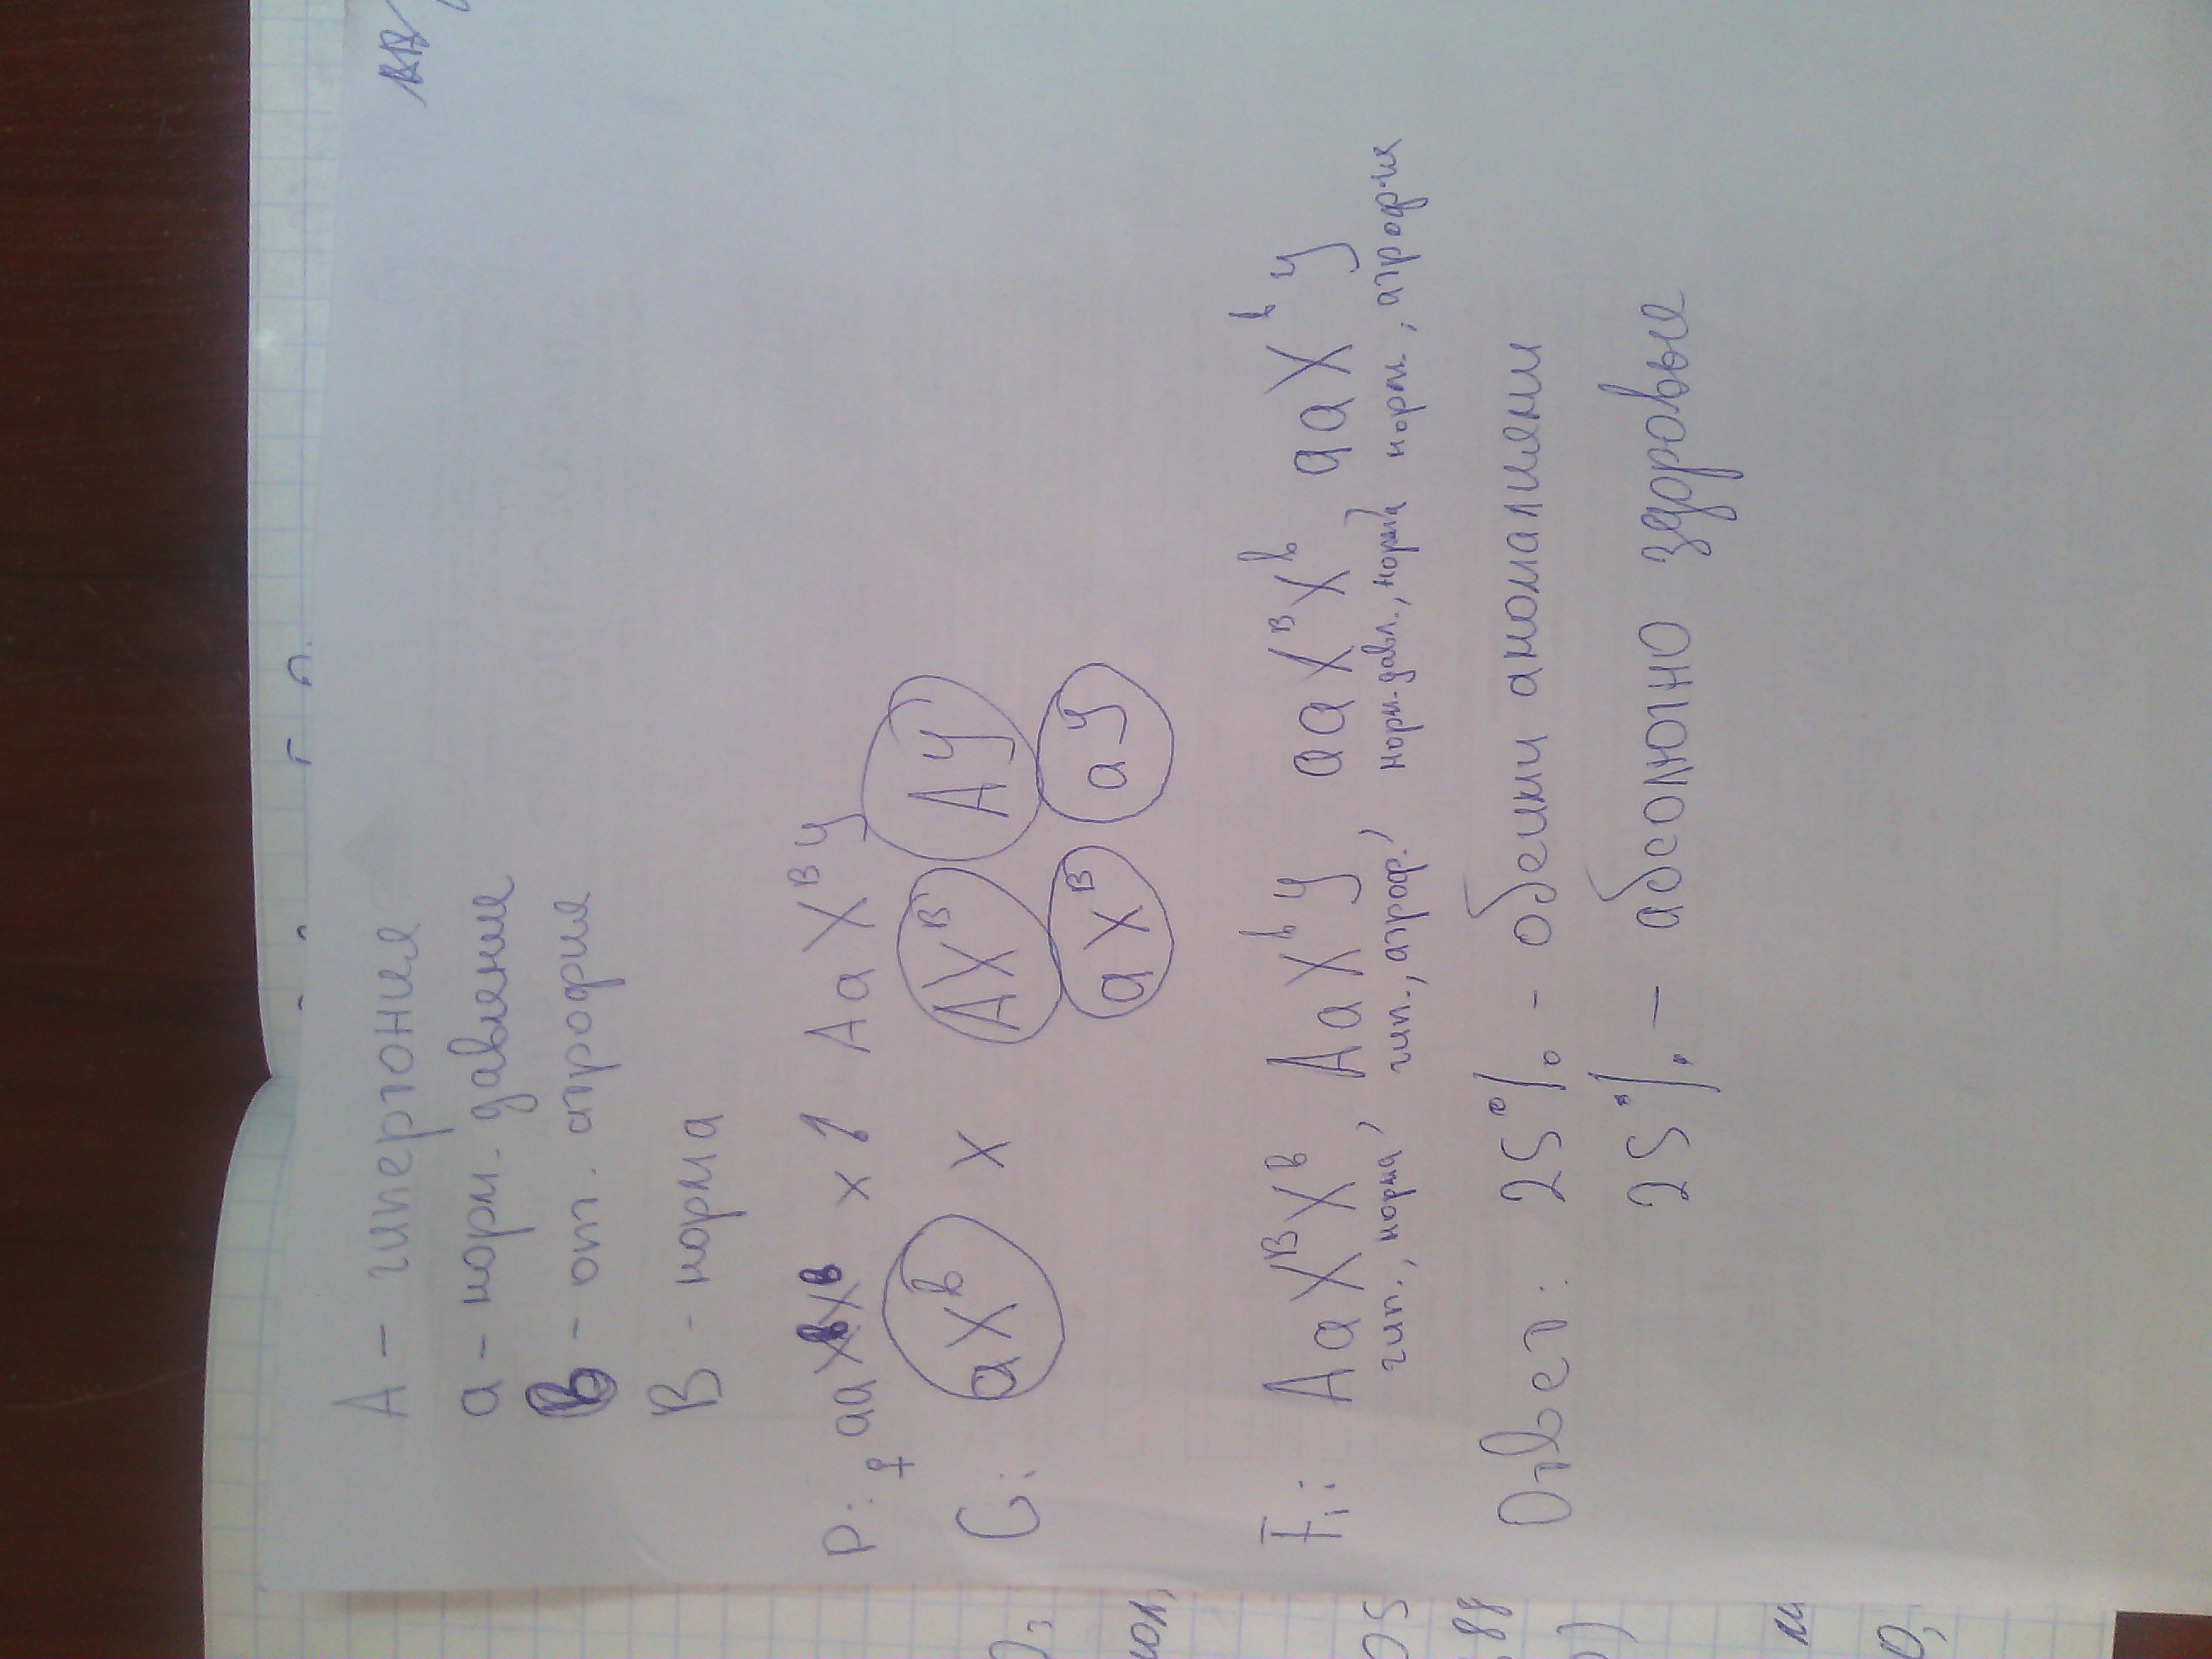 А - гипертония
а - норм. давление
в - от. атрофия
В - норма
P: ♀ aaXᵇXᵇ x ♂ AaXᴮY
G: aXᵇ x AXᴮ AY
aXᴮ aY
F₁: AaXᴮXᵇ, AaXᵇY, aaXᴮXᵇ, aaXᵇY
гип., норма, гип., атроф., норм. давл., норма норм., атрофия
Ответ: 25% - обеими аномалиями
25% - абсолютно здоровые